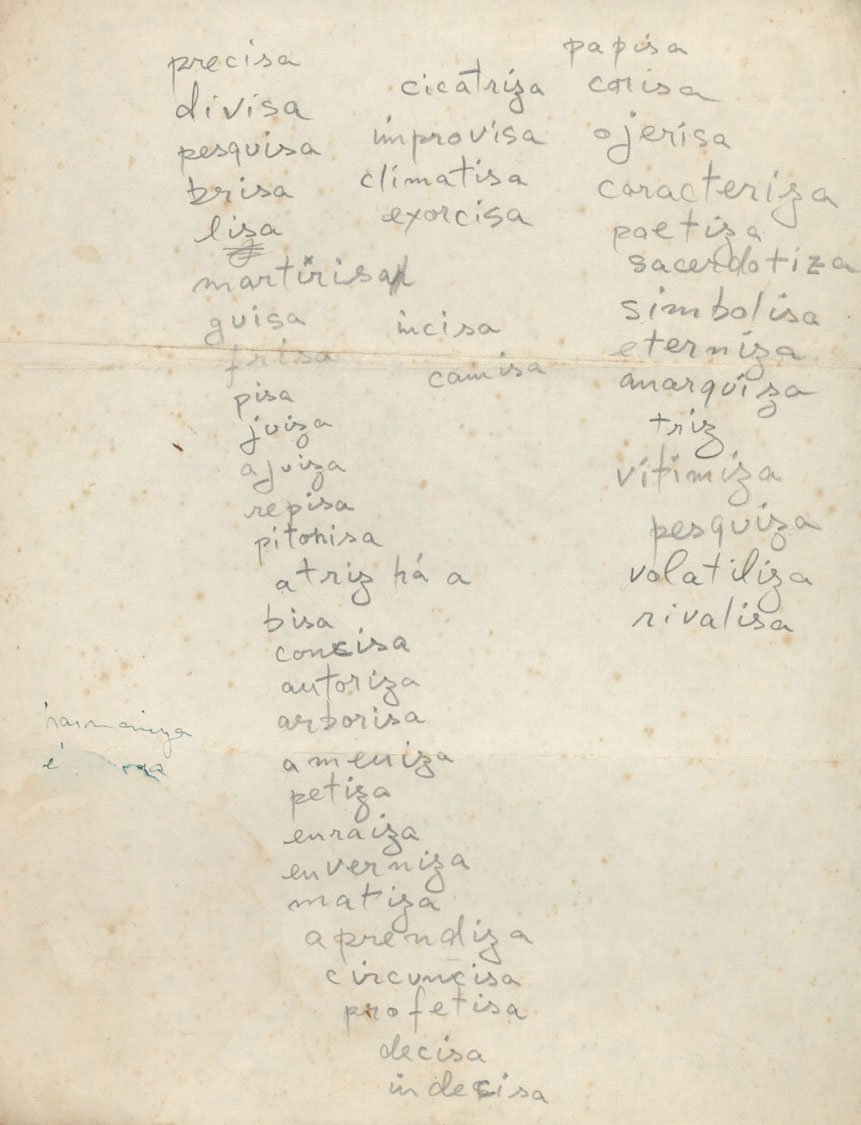 precisa
divisa
pesquisa
brisa
lisa
martirisa
guisa
frisa
pisa
juiza
ajuiza
repisa
pitonisa
atriz há a
bisa
concisa
autoriza
arborisa
ameniza
petiza
enraiza
enverniza
matiza
aprendiza
circuncisa
profetisa
decisa
indecisa
cicatriza
improvisa
climatisa
exorcisa
incisa
camisa
papisa
corisa
ojerisa
caracteriza
poetiza
sacerdotiza
simbolisa
eterniza
anarquiza
triz
vitimiza
pesquiza
volatiliza
rivalisa
harmoniza
é